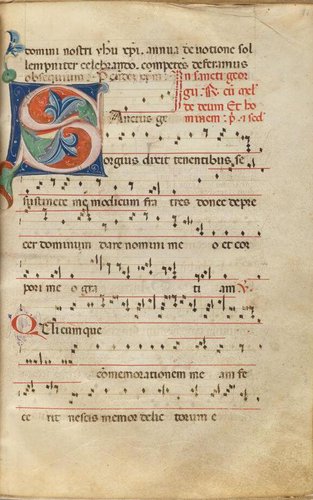 domini nostri yhu xpi. annua deuotione sol
lempniter celebrando. competens deferamus
obsequium:
In sancti geor
gii. R. cū ael
de deum Et ho
minem: p. i secl
Sanctus ge
orgius dixit tenentibus se
sustinete me modicum fra tres donec depre
cer dominum dare nomini me o et cor
pori me o gra ti am V.
Quicumque
cōmemorationem me am fe
ce rit nescis memor delic torum e